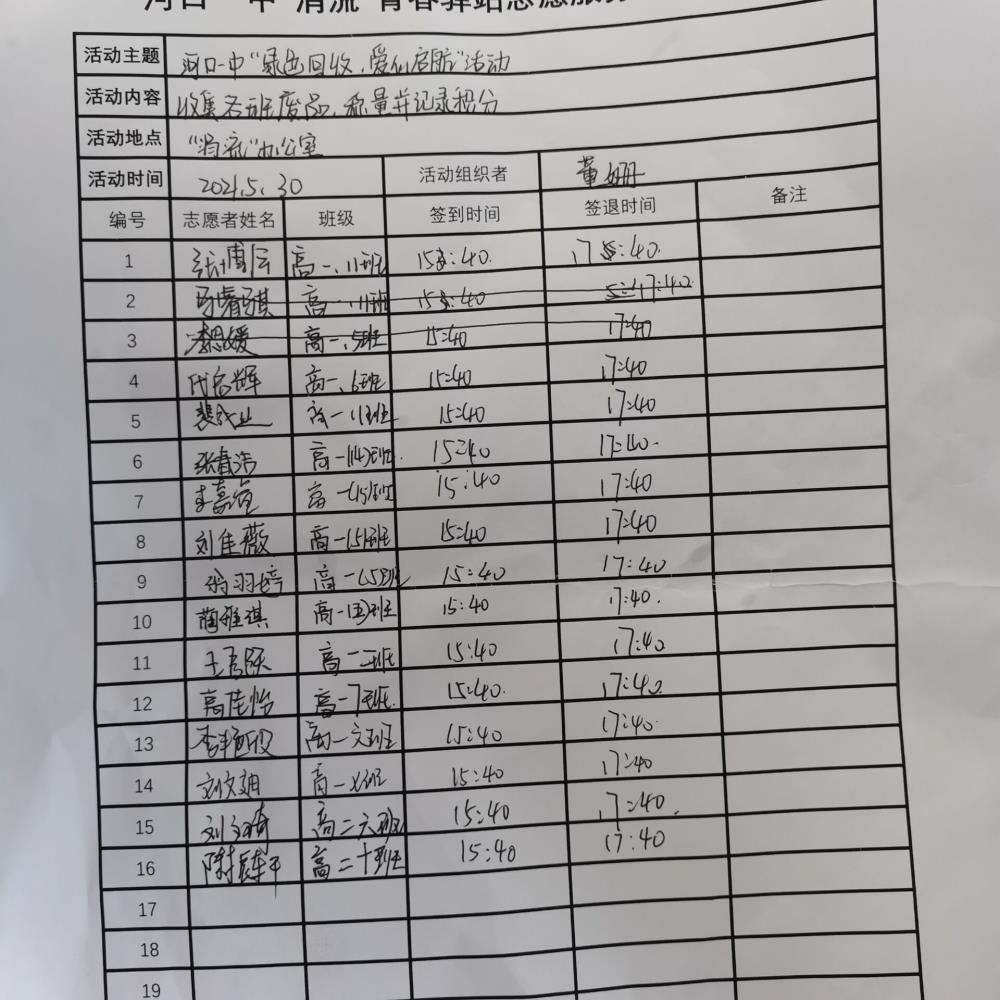 河口一中"清流"青春驿站志愿服务
活动主题 河口一中"绿色回收,爱心启航"活动
活动内容 收集各班废品,称量并记录积分
活动地点 "清流"办公室
活动时间 2021.5.30 活动组织者 董姗
编号 志愿者姓名 班级 签到时间 签退时间 备注
1 高一.11班 15:40. 17:40.
2 马睿骐 高一.11班 15:40 17:40.
3 李思媛 高一.5班 15:40 17:40
4 代启辉 高一.6班 15:40 17:40
5 裴成业 高一11班 15:40 17:40
6 张春浩 高一(4)班. 15:40 17:40
7 李嘉 高一(15)班 15:40 17:40
8 刘佳薇 高一(5)班 15:40 17:40
9 翁羽婷 高一(5)班 15:40 17:40
10 蔺雅琪 高一(五)班 15:40 17:40.
11 高一二班 15:40 17:40
12 高佳怡 高一7班. 15:40. 17:40.
13 李艳 高一六班 15:40 17:40.
14 刘文 高一七班 15:40 17:40
15 刘文琦 高二六班 15:40 17:40.
16 高二十班 15:40 17:40
17
18
19